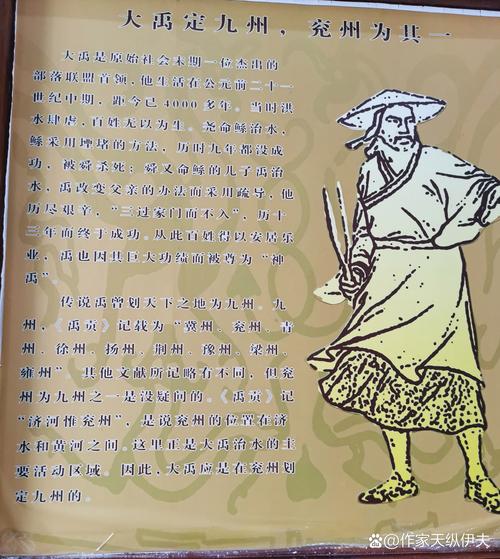 大禹定九州，兖州为其一
大禹是原始社会末期一位杰出的
部落联盟首领，他生活在公元前二十一
世纪中期，距今已4000多年。当时洪
水肆虐，百姓无以为生。尧命鲧治水，
鲧采用堙堵的方法，历时九年都没成
功，被舜杀死；舜又命鲧的儿子禹治
水，禹改变父亲的办法而采用疏导，他
历尽艰辛，“三过家门而不入”，历十
三年而终于成功。从此百姓得以安居乐
业，禹也因其巨大功绩而被尊为“神
禹”。
传说禹曾划天下之地为九州。九
州，《禹贡》记载为“冀州、兖州、青
州、徐州、扬州、荆州、豫州、梁州、
雍州”。其他文献所记略有不同，但兖
州为九州之一是没疑问的。《禹贡》记
“济河惟兖州”，是说兖州的位置在济
水和黄河之间。这里正是大禹治水的主
要活动区域。因此，大禹应是在兖州划
定九州的。
头条@作家天纵伊夫